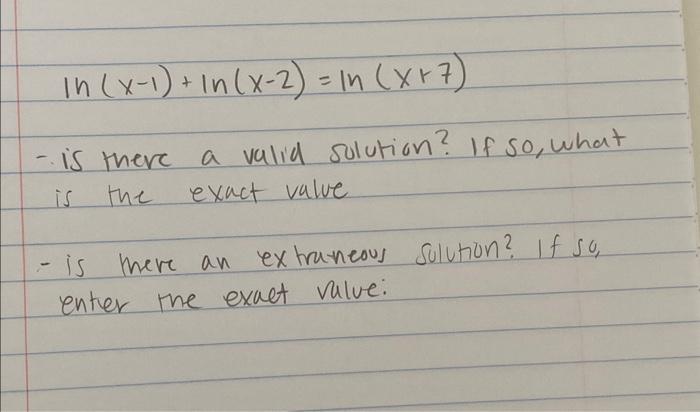 ln(x-1) + ln(x-2) = ln(x+7)
- is there a valid solution? If so, what
is the exact value
- is there an extraneous solution? If so,
enter the exact value: